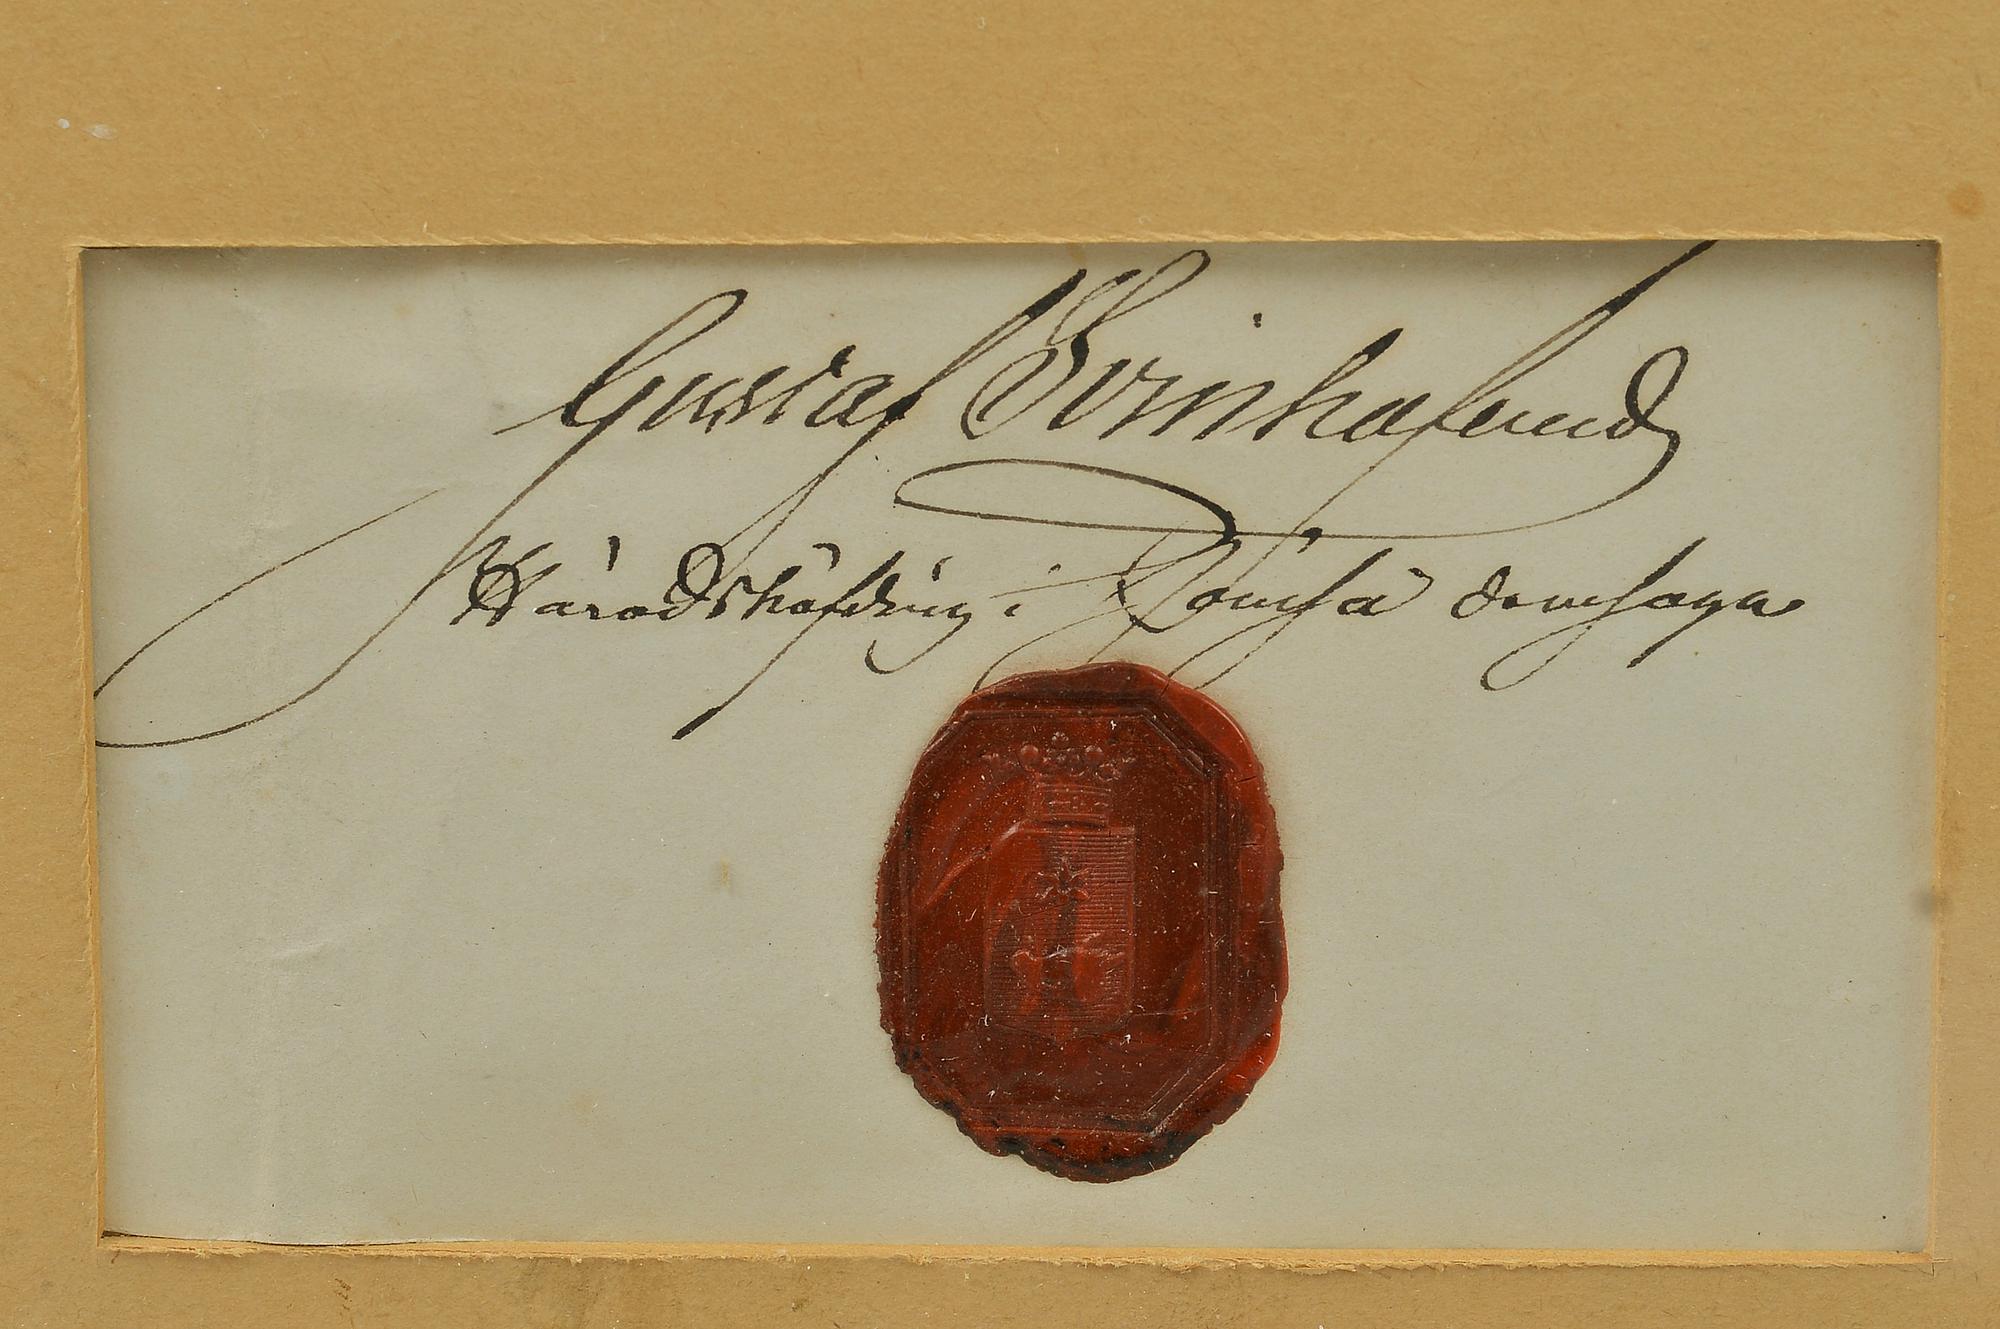 Gustaf Svinhufvud
Häradshöfding i domsaga